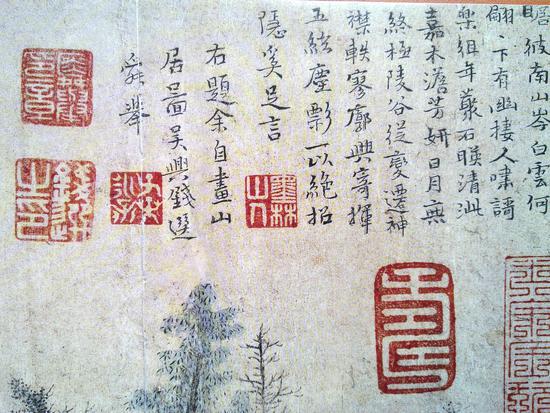 瞻彼南山岑白雲何
翩〻下有幽棲人嘯謌
樂徂年叢石暎清泚
嘉木澹芳妍日月無
終極陵谷從變遷神
襟軼寥廓興寄揮
五絃塵影一以絕招
隱奚足言
右題余自畫山
居啚吳興錢選
舜舉
錢選之印